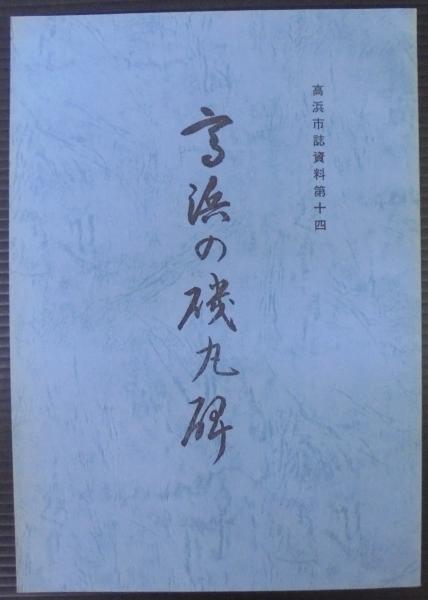 高浜市誌資料第十四
高浜の磯丸碑